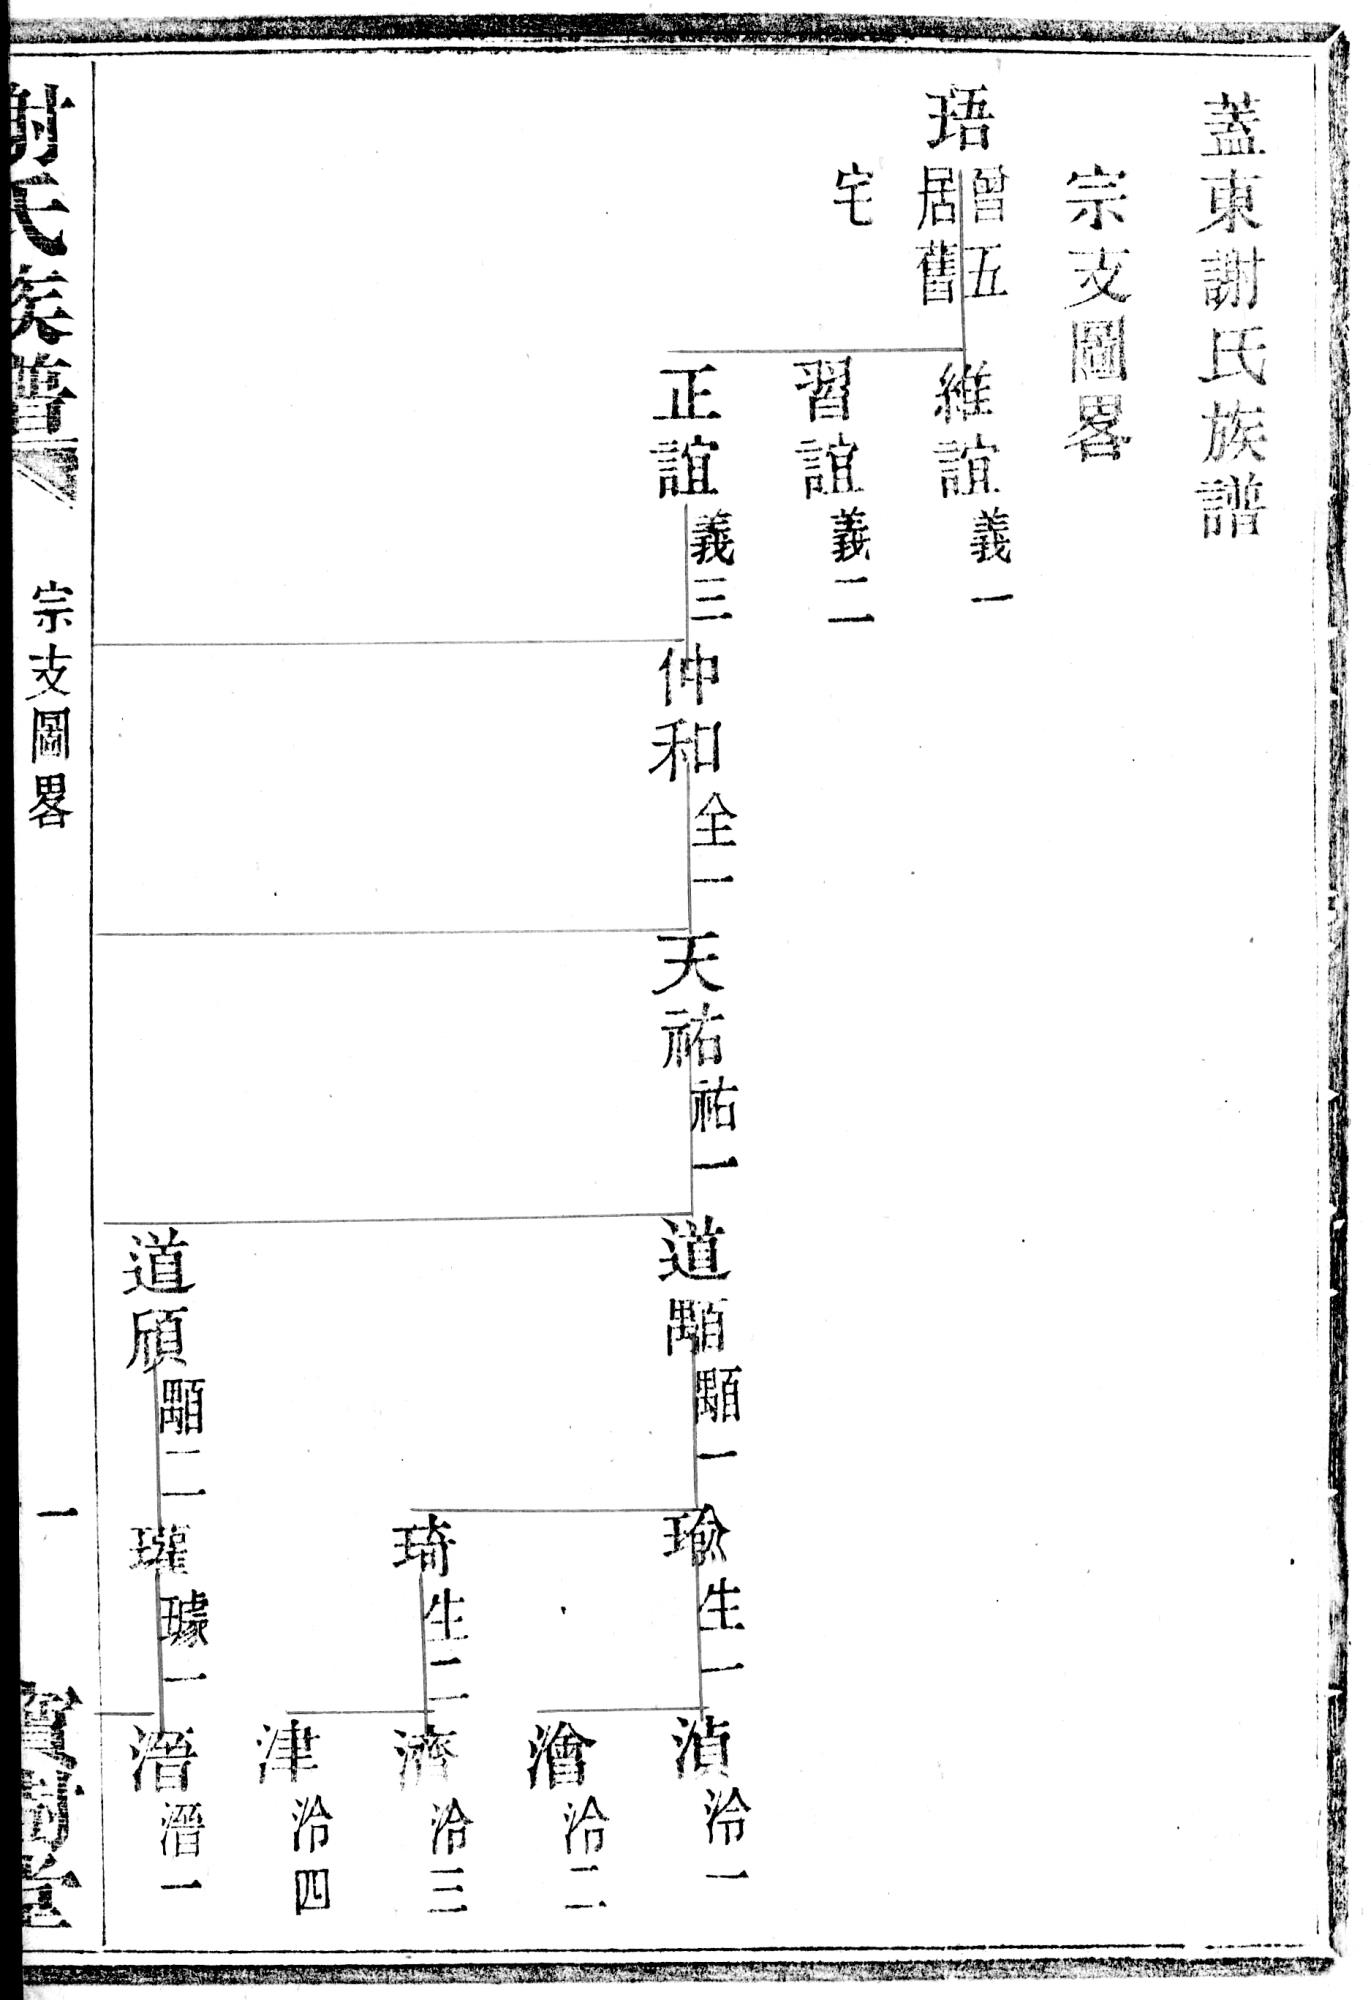 蓋東謝氏族譜
宗支圖畧
珸 曾五
居舊
宅
維誼 義一
習誼 義二
正誼 義三
仲和 全一
天祐 祐一
道顒 顒一
瑜 生一
湞 洽一
澮 洽二
琦 生二
濟 洽三
津 洽四
道頎 顒二
瓘 璩一
潛 潛一
謝氏族譜
宗支圖畧
一
寶樹堂